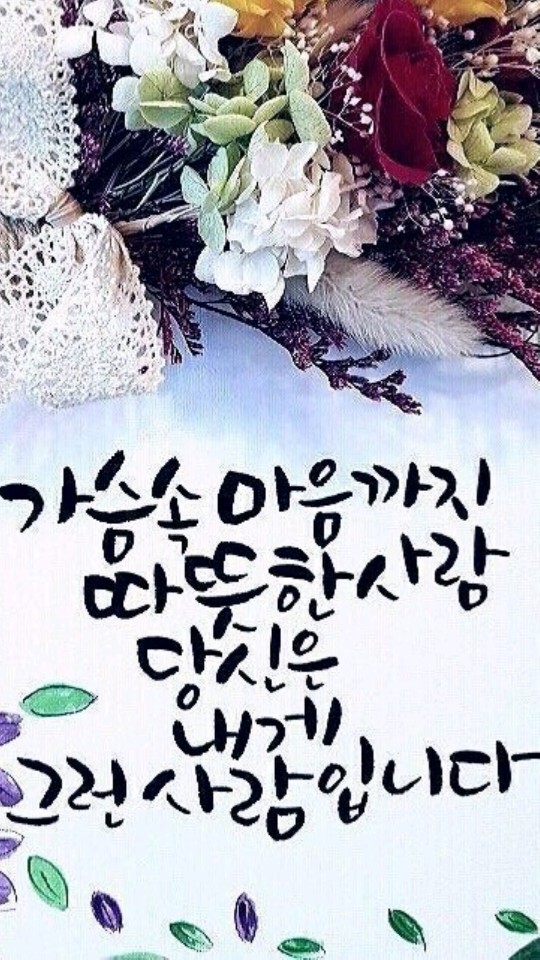 가슴속 마음까지
따뜻한 사람
당신은
내게
그런 사람입니다